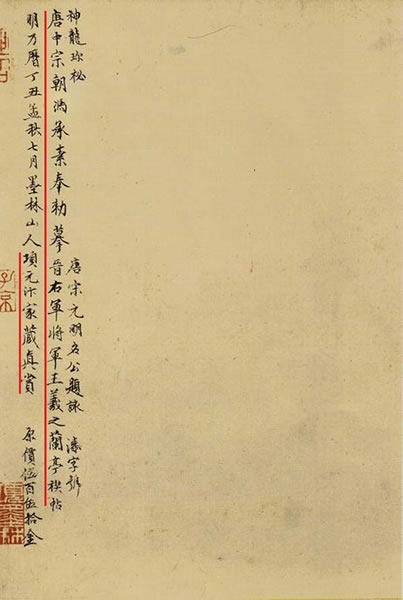 神龍珎秘
唐宋元明名公題詠 漆字號
唐中宗朝馮承素奉勅摹晉右軍將軍王羲之蘭亭禊帖
明万曆丁丑孟秋七月墨林山人項元汴家藏真賞
原價伍百伍拾金